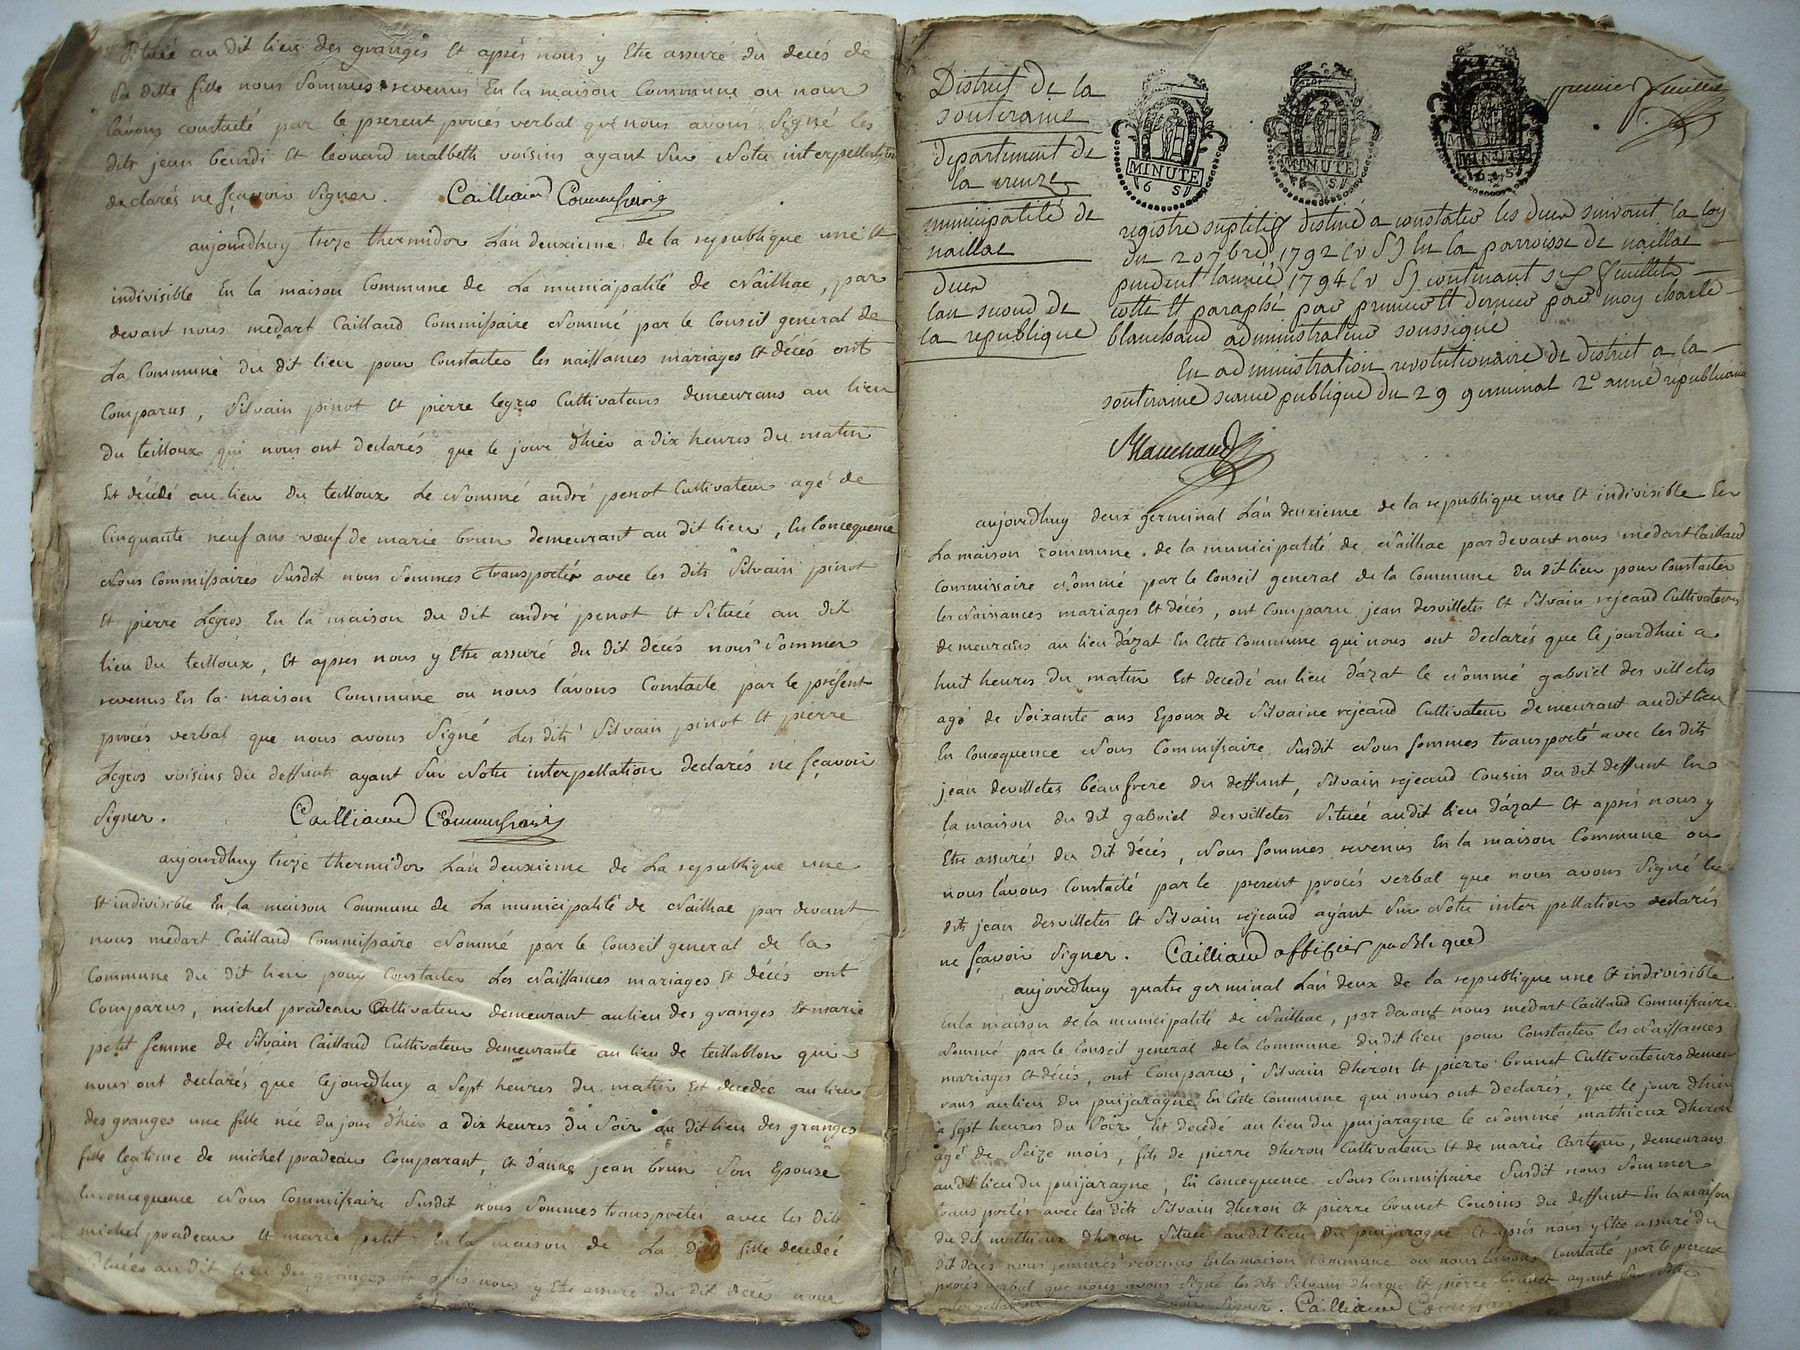 situé au dit lieu des granges et après nous y etre assuré du decés de
la ditte fille nous sommes revenus en la maison commune ou nous
lavons constaté par le present procés verbal que nous avons signé les
dits jean et leonard malbeth voisins ayant sur notre interpellation
declarés ne sçavoir signer. Cailliaud Commissaire
aujourdhuy treze thermidor l'an deuxieme de la republique une et
indivisible en la maison commune de la municipalité de Naillac, par
devant nous medart Caillaud commissaire nommé par le conseil general de
la commune du dit lieu pour constater les naissances mariages et décés ont
comparus, silvain pinot et pierre legros cultivateurs demeurans au lieu
du teilloux qui nous ont declarés que le jour d'hier a dix heures du matin
est décédé au lieu du teilloux le nommé andré penot cultivateur agé de
cinquante neuf ans voeuf de marie brun demeurant au dit lieu, en concequence
nous commissaires susdit nous sommes transportés avec les dits silvain pinot
et pierre legros en la maison du dit andré penot et situeé au dit
lieu du teilloux, et apres nous y etre assuré du dit décés nous sommes
revenus en la maison commune ou nous lavons constaté par le présent
procés verbal que nous avons signé les dits silvain pinot et pierre
legros voisins du deffunt ayant sur notre interpellation declarés ne sçavoir
signer. Cailliaud Commissaire
aujourdhuy treze thermidor l'an deuxieme de la republique une
et indivisible en la maison commune de la municipalité de Naillac par devant
nous medart Caillaud commissaire nommé par le conseil general de la
commune du dit lieu pour constater les naissances mariages et décés ont
comparus, michel pradeau cultivateur demeurant au lieu des granges et marie
petit femme de silvain Caillaud cultivateur demeurante au lieu de teillablon qui
nous ont declarés que cejourdhuy a sept heures du matin est decedée au lieu
des granges une fille née du jour d'hier a dix heures du soir au dit lieu des granges
fille legitime de michel pradeau comparant, et d'anne jean brun son epouse
en concequence nous commissaire susdit nous sommes transportés avec les dits
michel pradeau et marie petit en la maison de la dite fille decedée
situées au dit lieu des granges et aprés nous y etre assuré du dit décés nous
District de la
souteraine
departement de
la creuze
municipalité de
naillac
deces
lan second de
la republique
MINUTE
6 S
MINUTE
6 S
MINUTE
6 S
premier feuillet
registre supletif destiné a constater les deces suivant la loy
du 20 7bre 1792 (v s) en la parroisse de naillac
pendent lannée 1794 (v s) contenant feuillets
cotte et paraphé par premier et dernier par moy charle
blanchard administrateur soussigné
En administration revolutionaire de district a la
souteraine seance publique du 29 germinal 2e anné republicaine
Blanchard
aujourdhuy deux germinal l'an deuxieme de la republique une et indivisible en
la maison commune de la municipalité de Naillac par devant nous medart Caillaud
commissaire nommé par le conseil general de la commune du dit lieu pour constater
les naissances mariages et décés, ont comparu jean desvilletes et silvain rejeaud cultivateurs
demeurans au lieu d'azat en cette commune qui nous ont declarés que cejourdhui a
huit heures du matin est decedé au lieu d'azat le nommé gabriel des villetes
agé de soixante ans epoux de silvaine rejeaud cultivateur demeurant au dit lieu
en concequence nous commissaire susdit nous sommes transporté avec les dits
jean devilletes beaufrere du deffunt, silvain rejeaud cousin du dit deffunt en
la maison du dit gabriel desvilletes située au dit lieu d'azat et aprés nous y
etre assurés du dit décés, nous sommes revenus en la maison commune ou
nous lavons constaté par le present procés verbal que nous avons signé les
dits jean desvilletes et silvain rejeaud ayant sur notre interpellation declarés
ne sçavoir signer. Cailliaud officier publique
aujourdhuy quatre germinal l'an deux de la republique une et indivisible
en la maison de la municipalité de Naillac, par devant nous medart Caillaud commissaire
nommé par le conseil general de la commune du dit lieu pour constater les naissances
mariages et décés, ont comparus, silvain dheron et pierre brunet cultivateurs demeu
rans au lieu du puijaragne en cette commune qui nous ont declarés, que le jour d'hier
a sept heures du soir est decédé au lieu du puijaragne le nommé mathieux dheron
agé de seize mois, fils de pierre dheron cultivateur et de marie carteau, demeurans
au dit lieu du puijaragne, en concequence nous commissaire susdit nous sommes
transportés avec les dits silvain dheron et pierre brunet cousins du deffunt en la maison
du dit mathieux dheron située au dit lieu du puijaragne et aprés nous y etre assuré du
dit décés nous sommes revenus en la maison commune ou nous lavons constaté par le present
procés verbal que nous avons signé les dits silvain dheron et pierre brunet ayant sur notre
interpellation signer. Cailliaud Commissaire